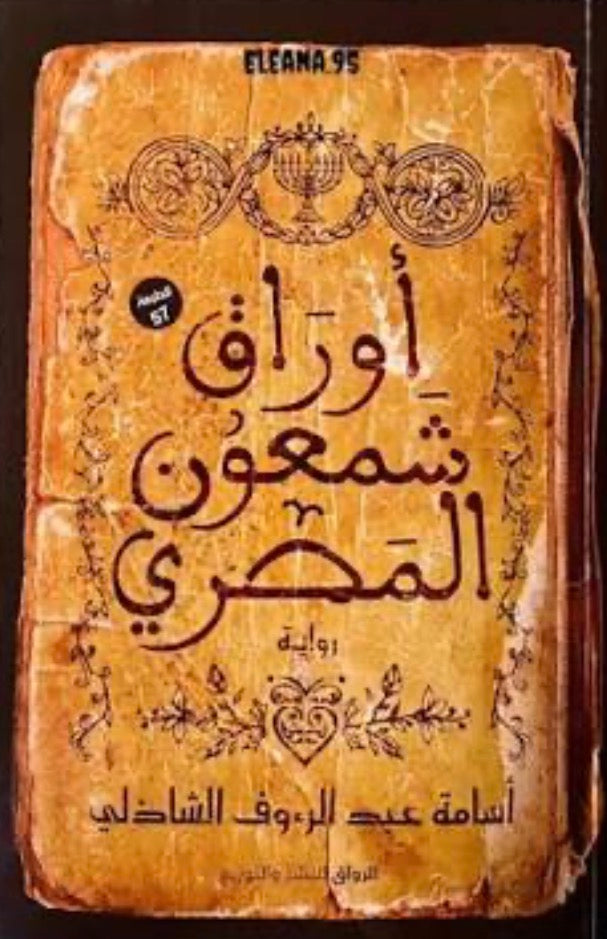 ELEANA.95
الطبعة
57
أَوراق
شَمعُون
المَصري
رواية
أسامة عبد الرءوف الشاذلي
الرواق للنشر والتوزيع